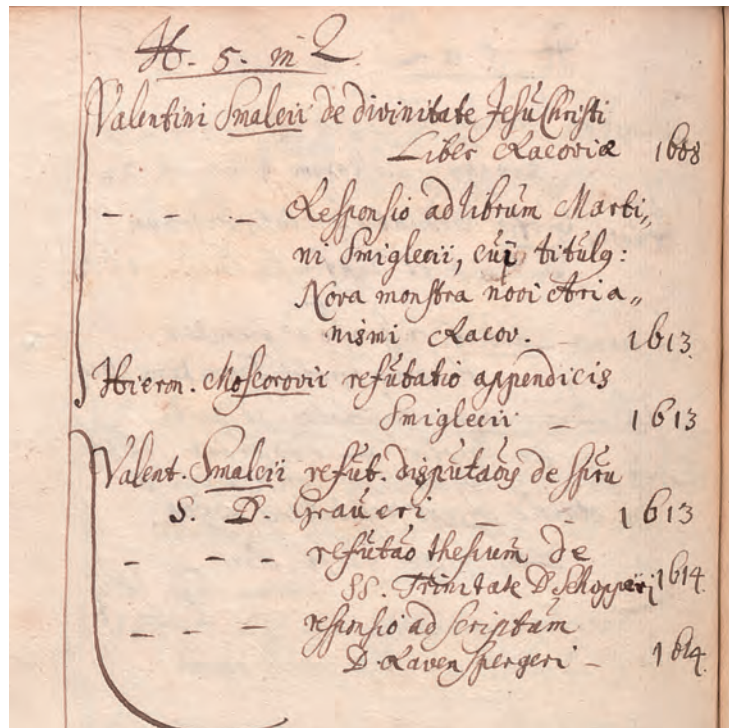 H. 5. in Q
Valentini Smalcii de divinitate Jesu Christi
Liber Racoviæ 1608
- - - Responsio ad librum Marti„
ni Smiglecii, cui titulꝯ:
Nova monstra novi Aria„
nismi Racov. - 1613.
Hieron. Moscorovii refutatio appendicis
Smiglecii - 1613
Valent. Smalcii refut. disputaois de spiru
S. D. Graueri - - 1613
- - - refutao thesium de
SS. Trinitate D. Schopperi 1614.
- - - responsio ad scriptum
D Ravenspergeri - 1614.